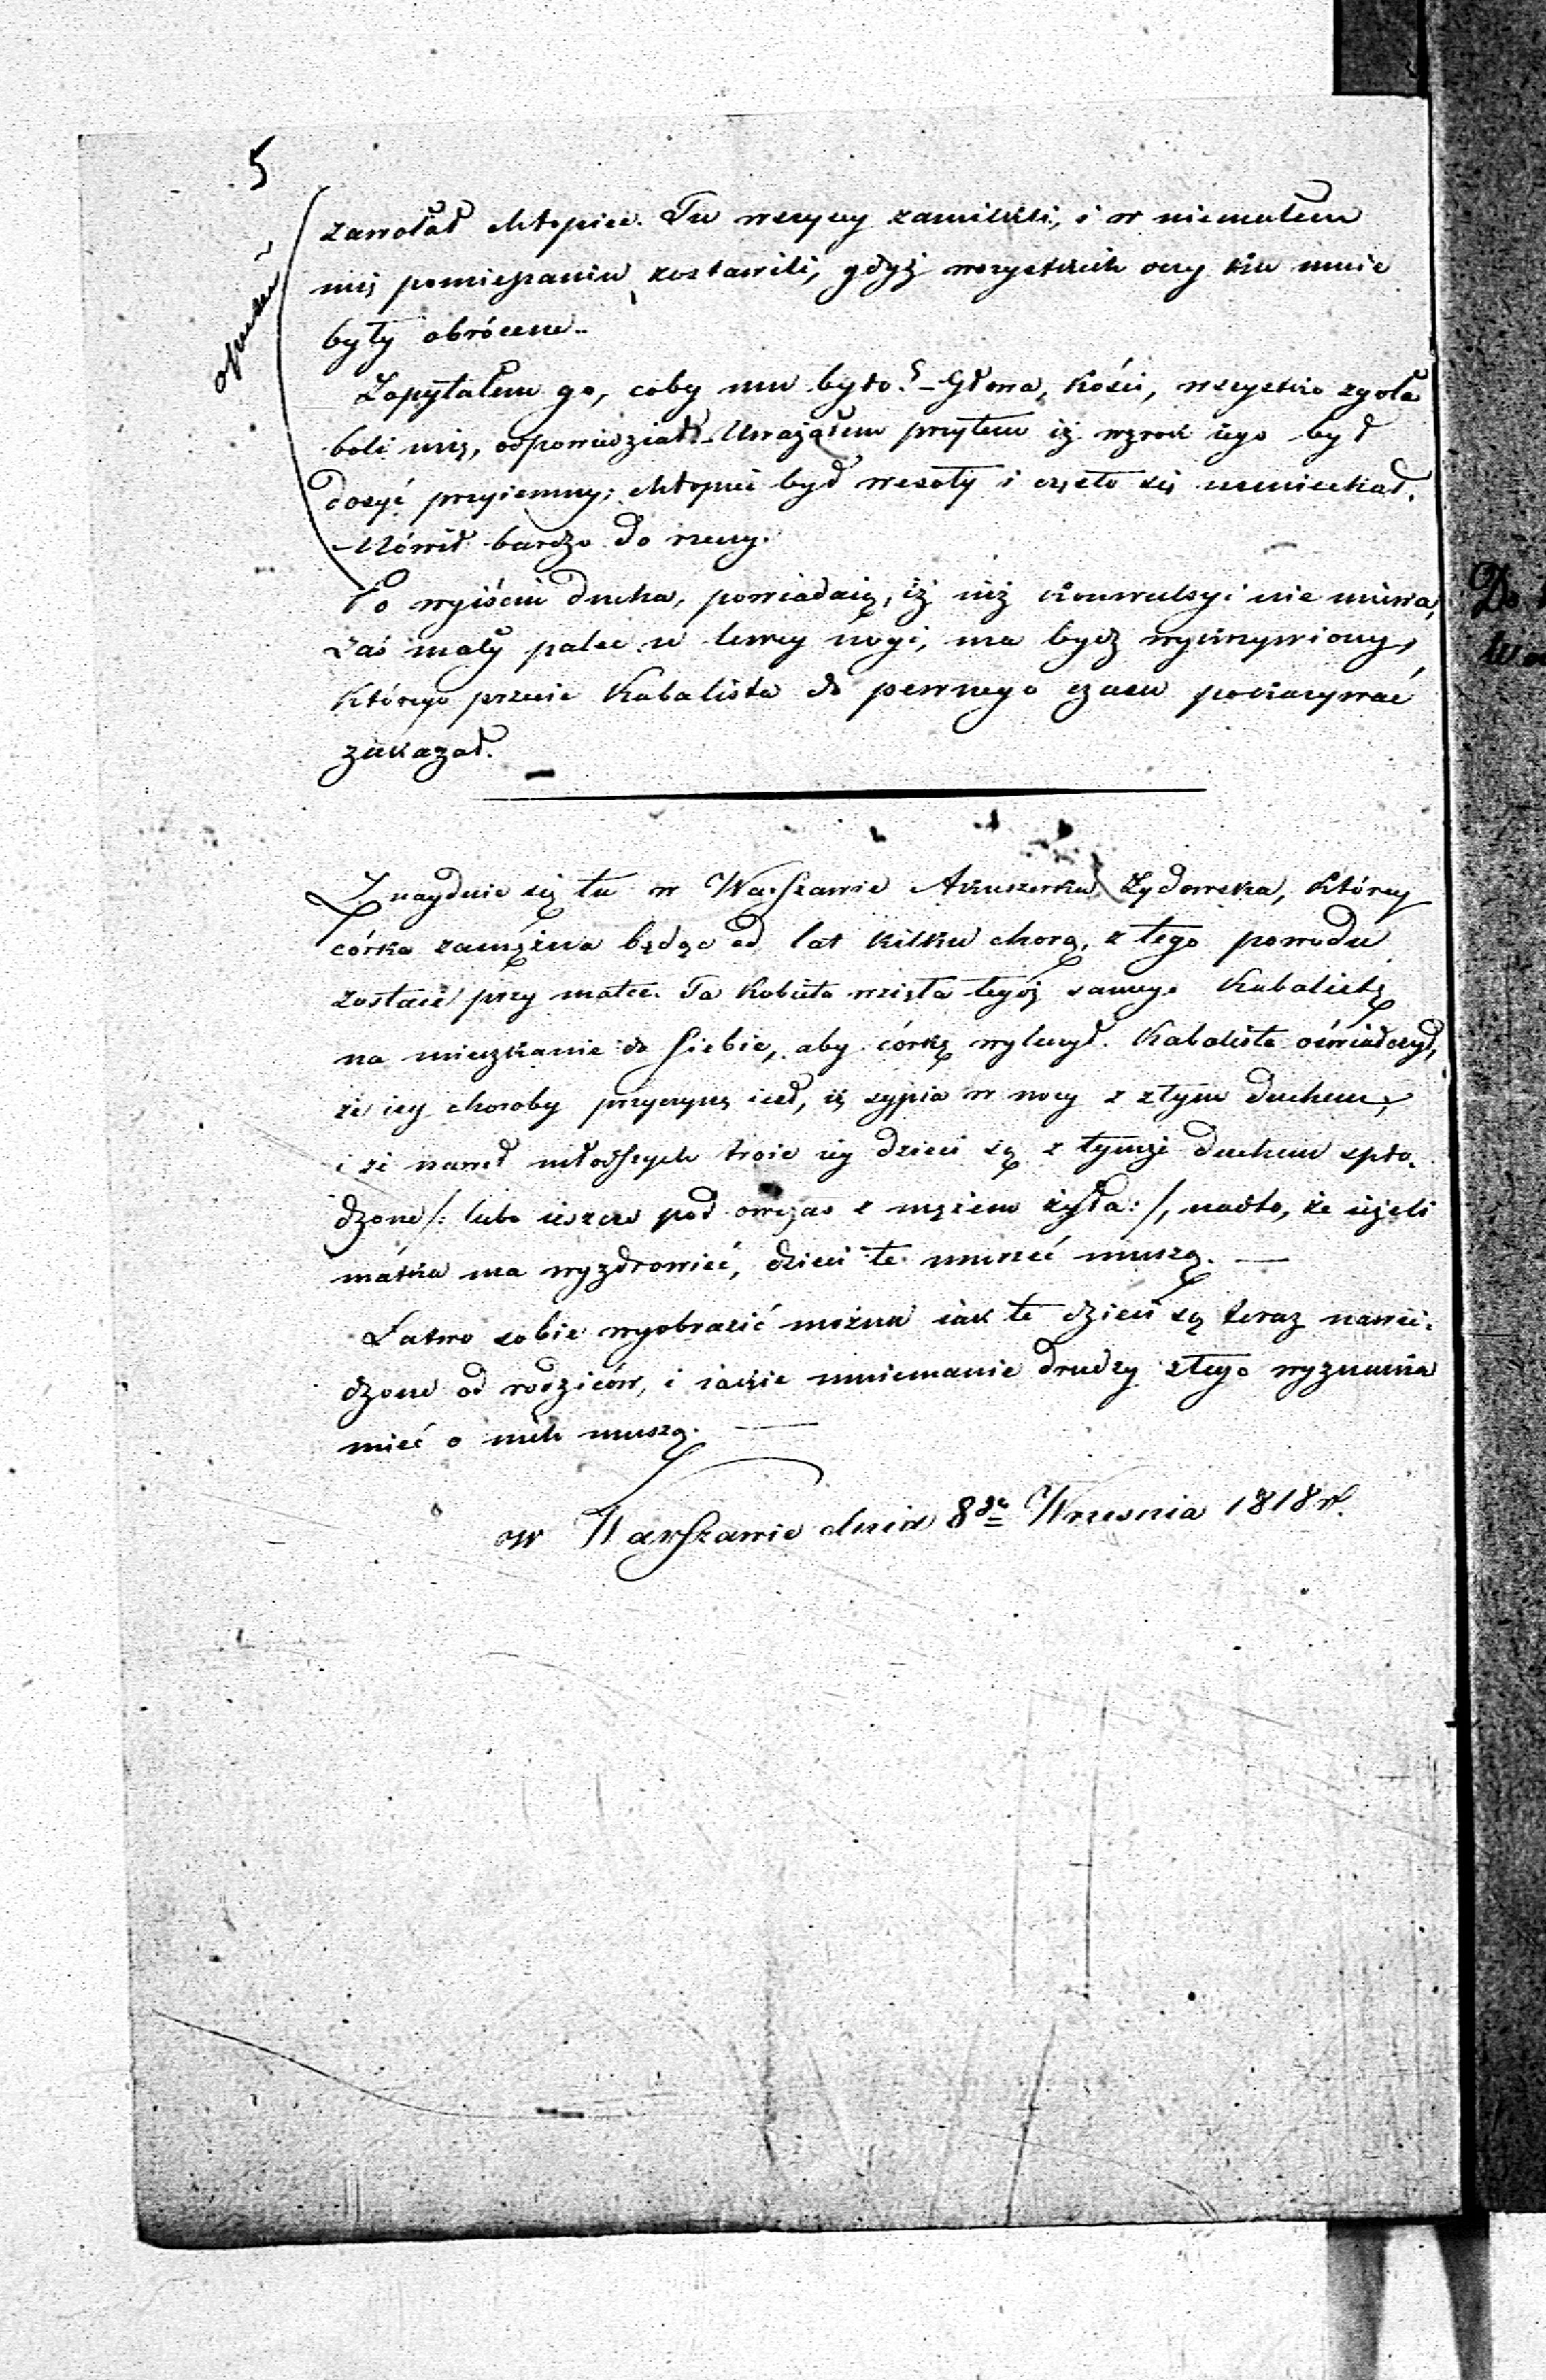 5
zawołał chłopiec. Tu wszyscy zamilkli, i w niemałem
mię pomieszaniu zostawili, gdyż wszystkich oczy ku mnie
były obrócone.
Zapytałem go, coby mu było? – Głowa, kości, wszystko zgoła
boli mię, odpowiedział. – Uważałem przytem iż wzrok iego był
dosyć przyiemny; chłopiec był wesoły i często się uśmiechał.
– Mówił bardzo do rzeczy.
Po wyiściu ducha, powiadaią, iż iuż konwulsyi nie miewa,
zaś mały palec u lewey nogi, ma bydź wykrzywiony,
którego przecie Kabalista do pewnego czasu pokazywać
zakazał.
Znayduie się tu w Warszawie Akuszerka Żydowska, którey
córka zamężna będąc od lat kilku chorą, z tego powodu
zostaie przy matce. Ta kobieta wzięła tegóż samego Kabalistę
na mieszkanie do siebie, aby córkę wyleczył. Kabalista oświadczył,
że iey choroby przyczyną iest, iż sypia w nocy z złym duchem,
i że nawet młodszych troie iey dzieci są z tymże duchem spło-
dzone /: lubo ieszcze pod owczas z mężem żyła :/, nadto, że ieżeli
matka ma wyzdrowieć, dzieci te umrzeć muszą. —
Łatwo sobie wyobrazić można iak te dzieci są teraz nawi-
dzone od rodziców, i iakie mniemanie drudzy z tego wyznania
mieć o nich muszą. —
w Warszawie dnia 8go Września 1818 r.